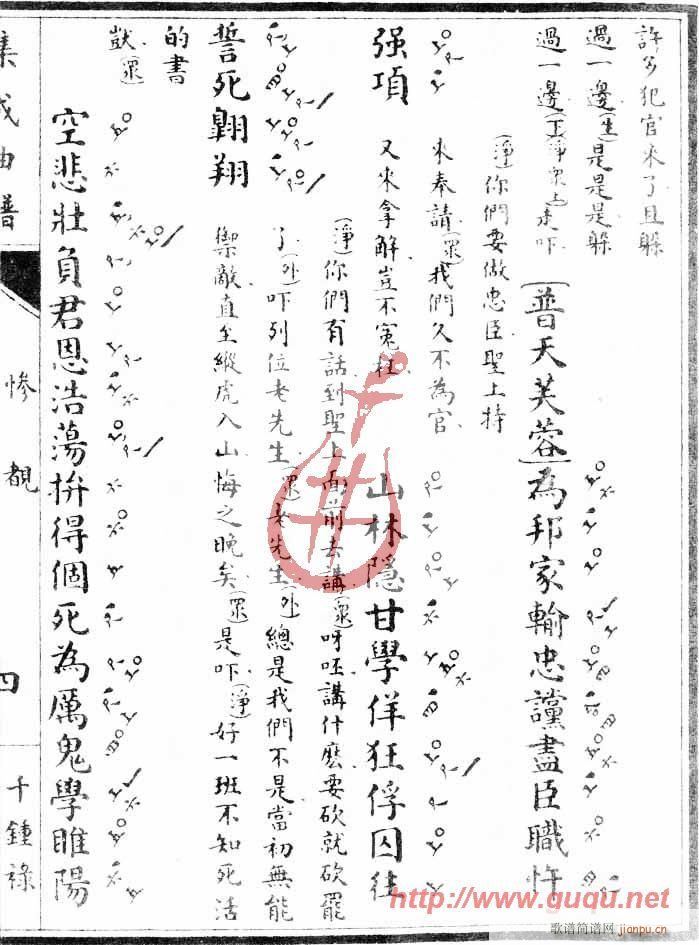 許多犯官來了且躲
過一邊(生)是是是躲
過一邊(丑淨眾上)走吓
[普天芙蓉]為邦家輸忠讜盡臣職忤
(淨)你們要做忠臣聖上特
來奉請(眾)我們久不為官
强項 又來拿解豈不冤枉 山林隱甘學佯狂俘囚往
(淨)你們有話到聖上面前去講(眾)呀呸講什麽要砍就砍罷
了(外)吓列位老先生(眾)老先生(外)總是我們不是當初無能
誓死翺翔 禦敵直至縱虎入山悔之晚矣(眾)是吓(淨)好一班不知死活
的書
獃(眾)
空悲壯負君恩浩蕩拚得個死為厲鬼學睢陽
集成曲譜
慘覩
四
千鍾祿
http://www.guqu.net
歌谱简谱网
jianpu.cn